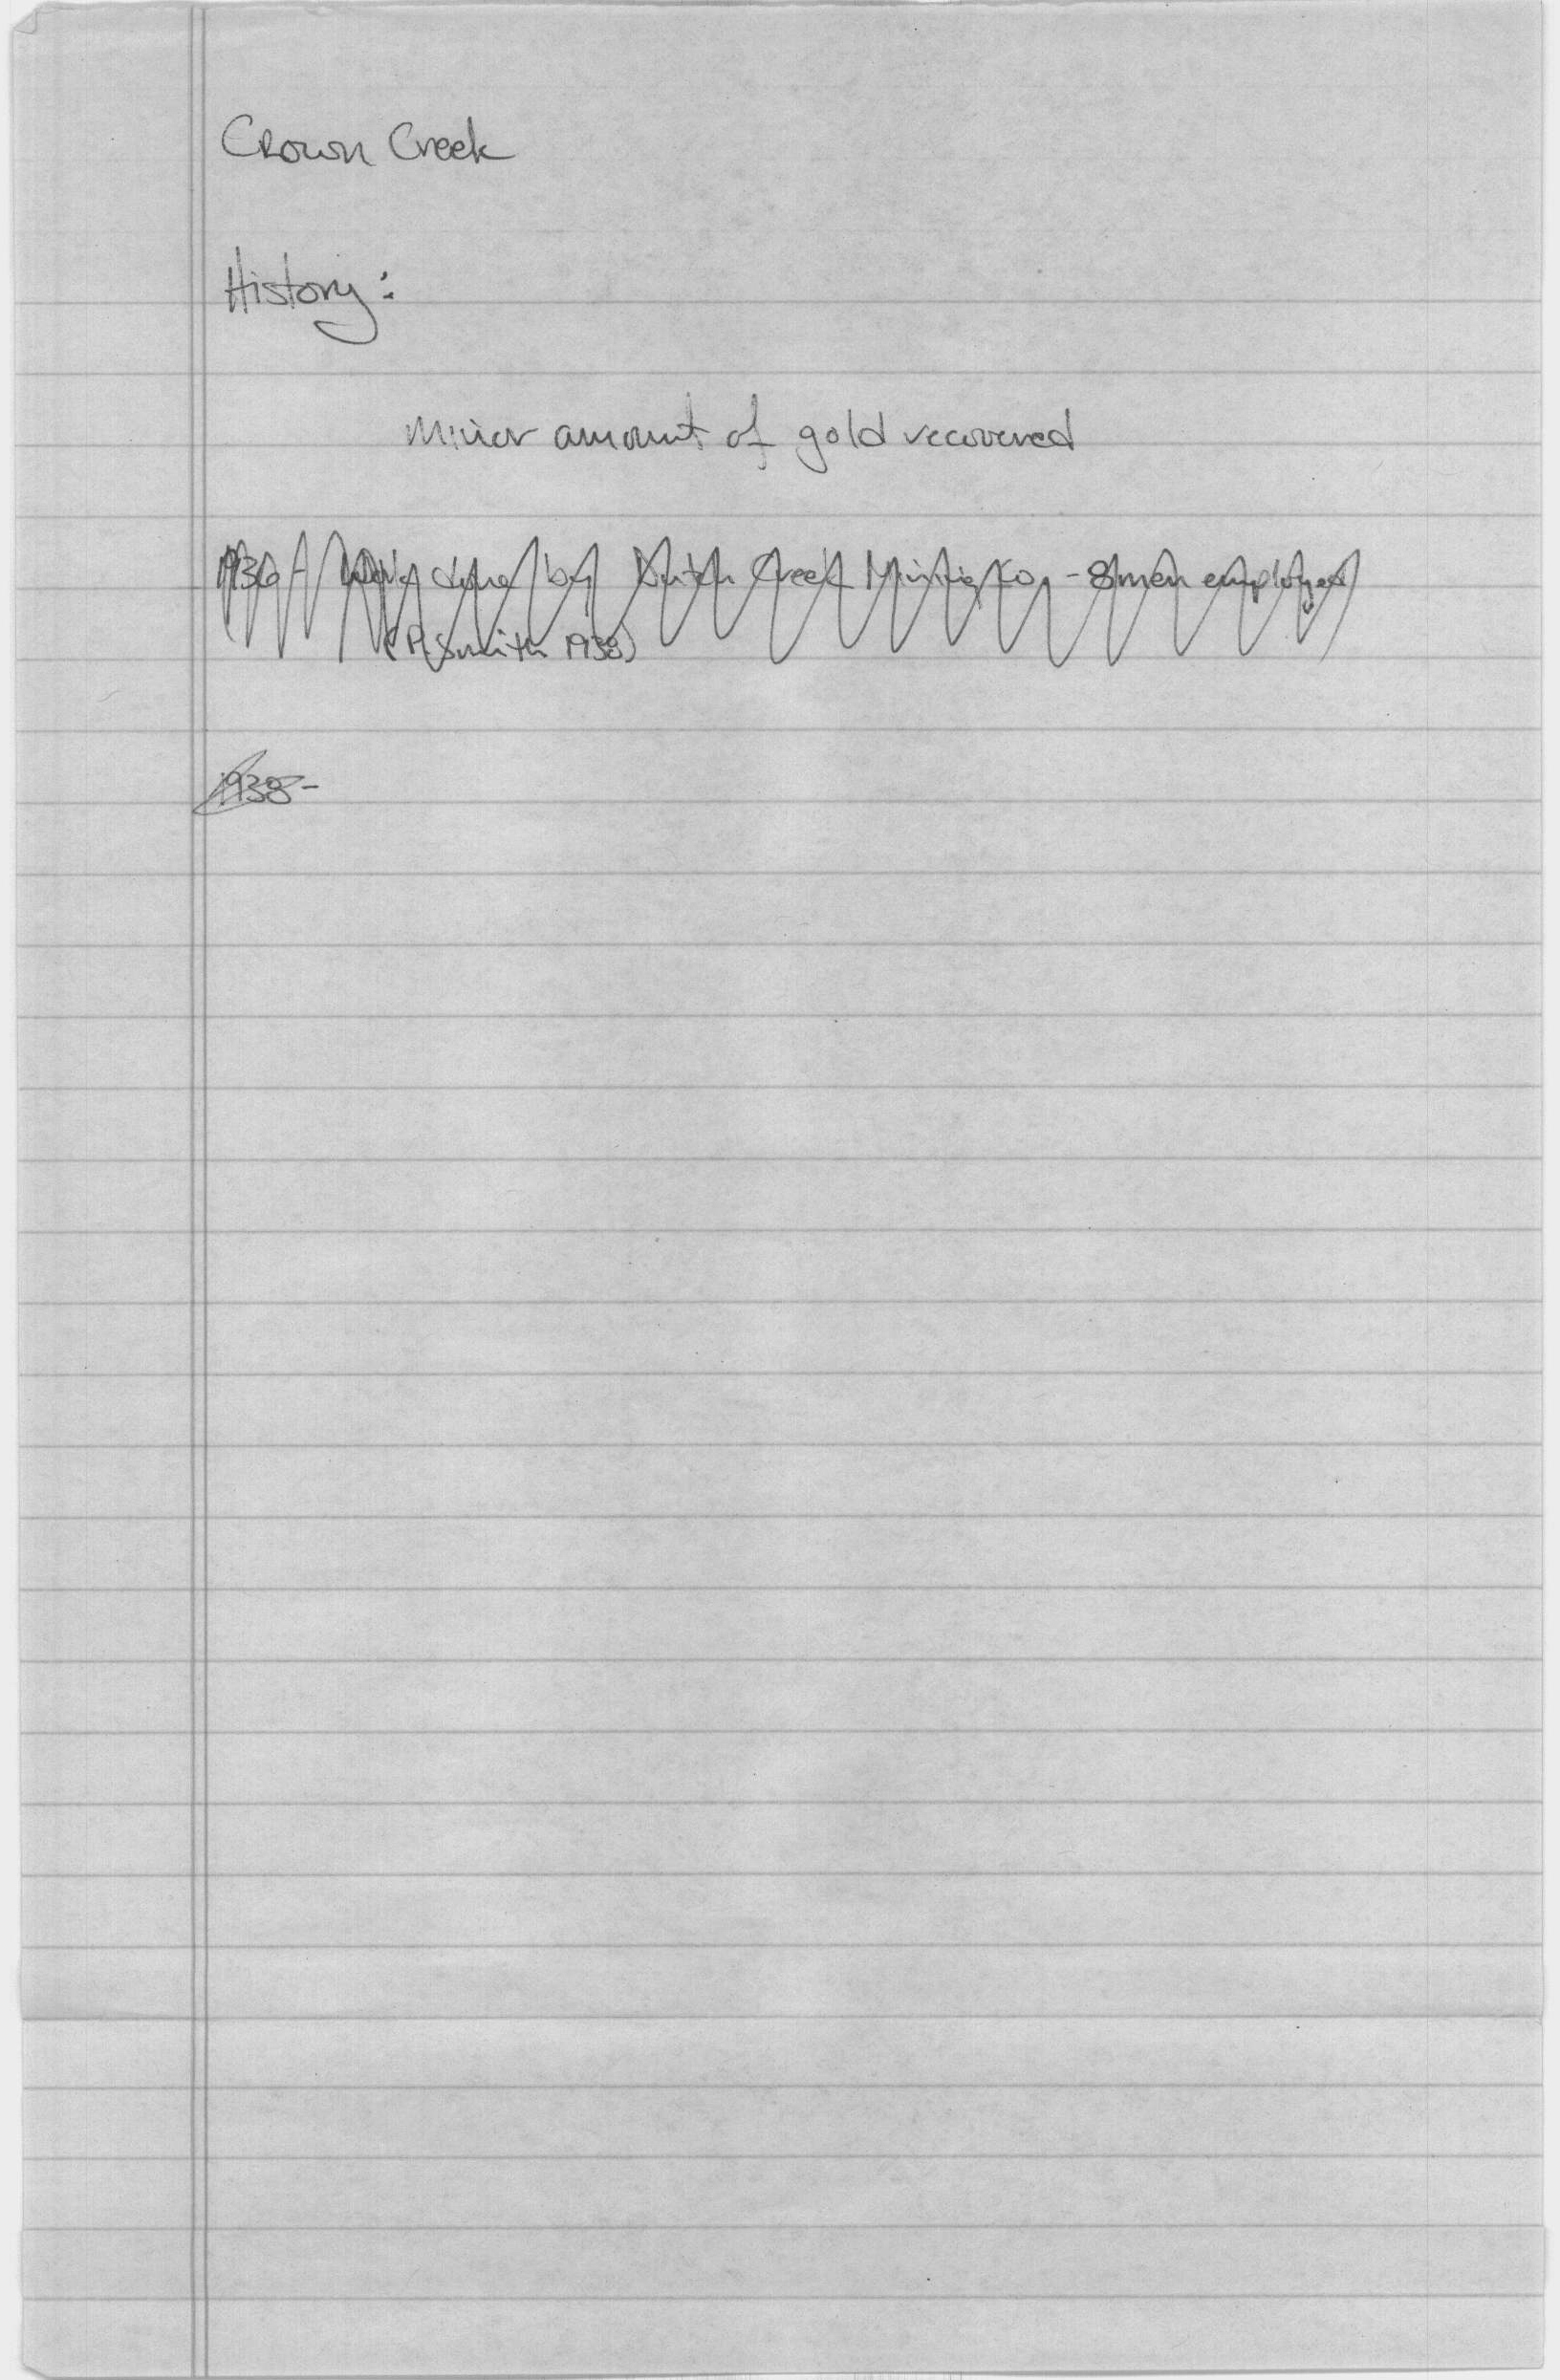 Crown Creek
History:
minor amount of gold recovered
1936 - Work done by Dutch Creek Mining Co. - 8 men employed
(P. Smith 1938)
1938-